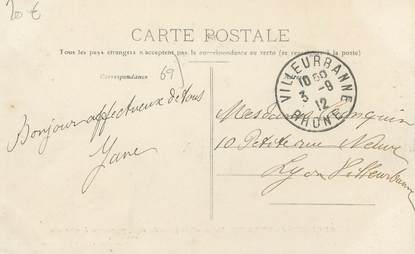 20 €
CARTE POSTALE
Tous les pays étrangers n'acceptent pas la correspondance au verso (se renseigner à la poste)
Correspondance
69
VILLEURBANNE
10 50
3 -9
12
RHÔNE
Bonjour affectueux de tous
10 Petite rue Neuve
Lyon Villeurbanne